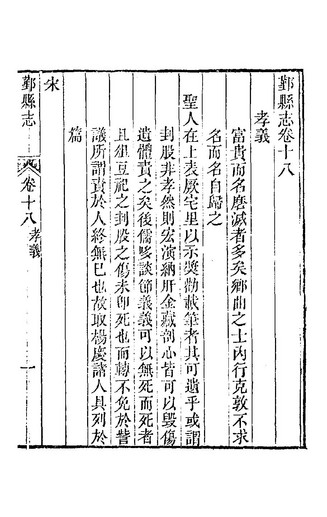 鄞縣志卷十八
孝義
富貴而名磨滅者多矣鄉曲之士內行克敦不求
名而名自歸之
聖人在上表厥宅里以示獎勸載筆者其可遺乎或謂
刲股非孝然則宏演納肝金藏剖心皆可以毀傷
遺體責之矣後儒侈談節義義可以無死而死者
且俎豆祀之刲股之傷未卽死也而轉不免於訾
議所謂責於人終無已也故取楊慶諸人具列於
篇
宋
鄞縣志
卷十八 孝義
一